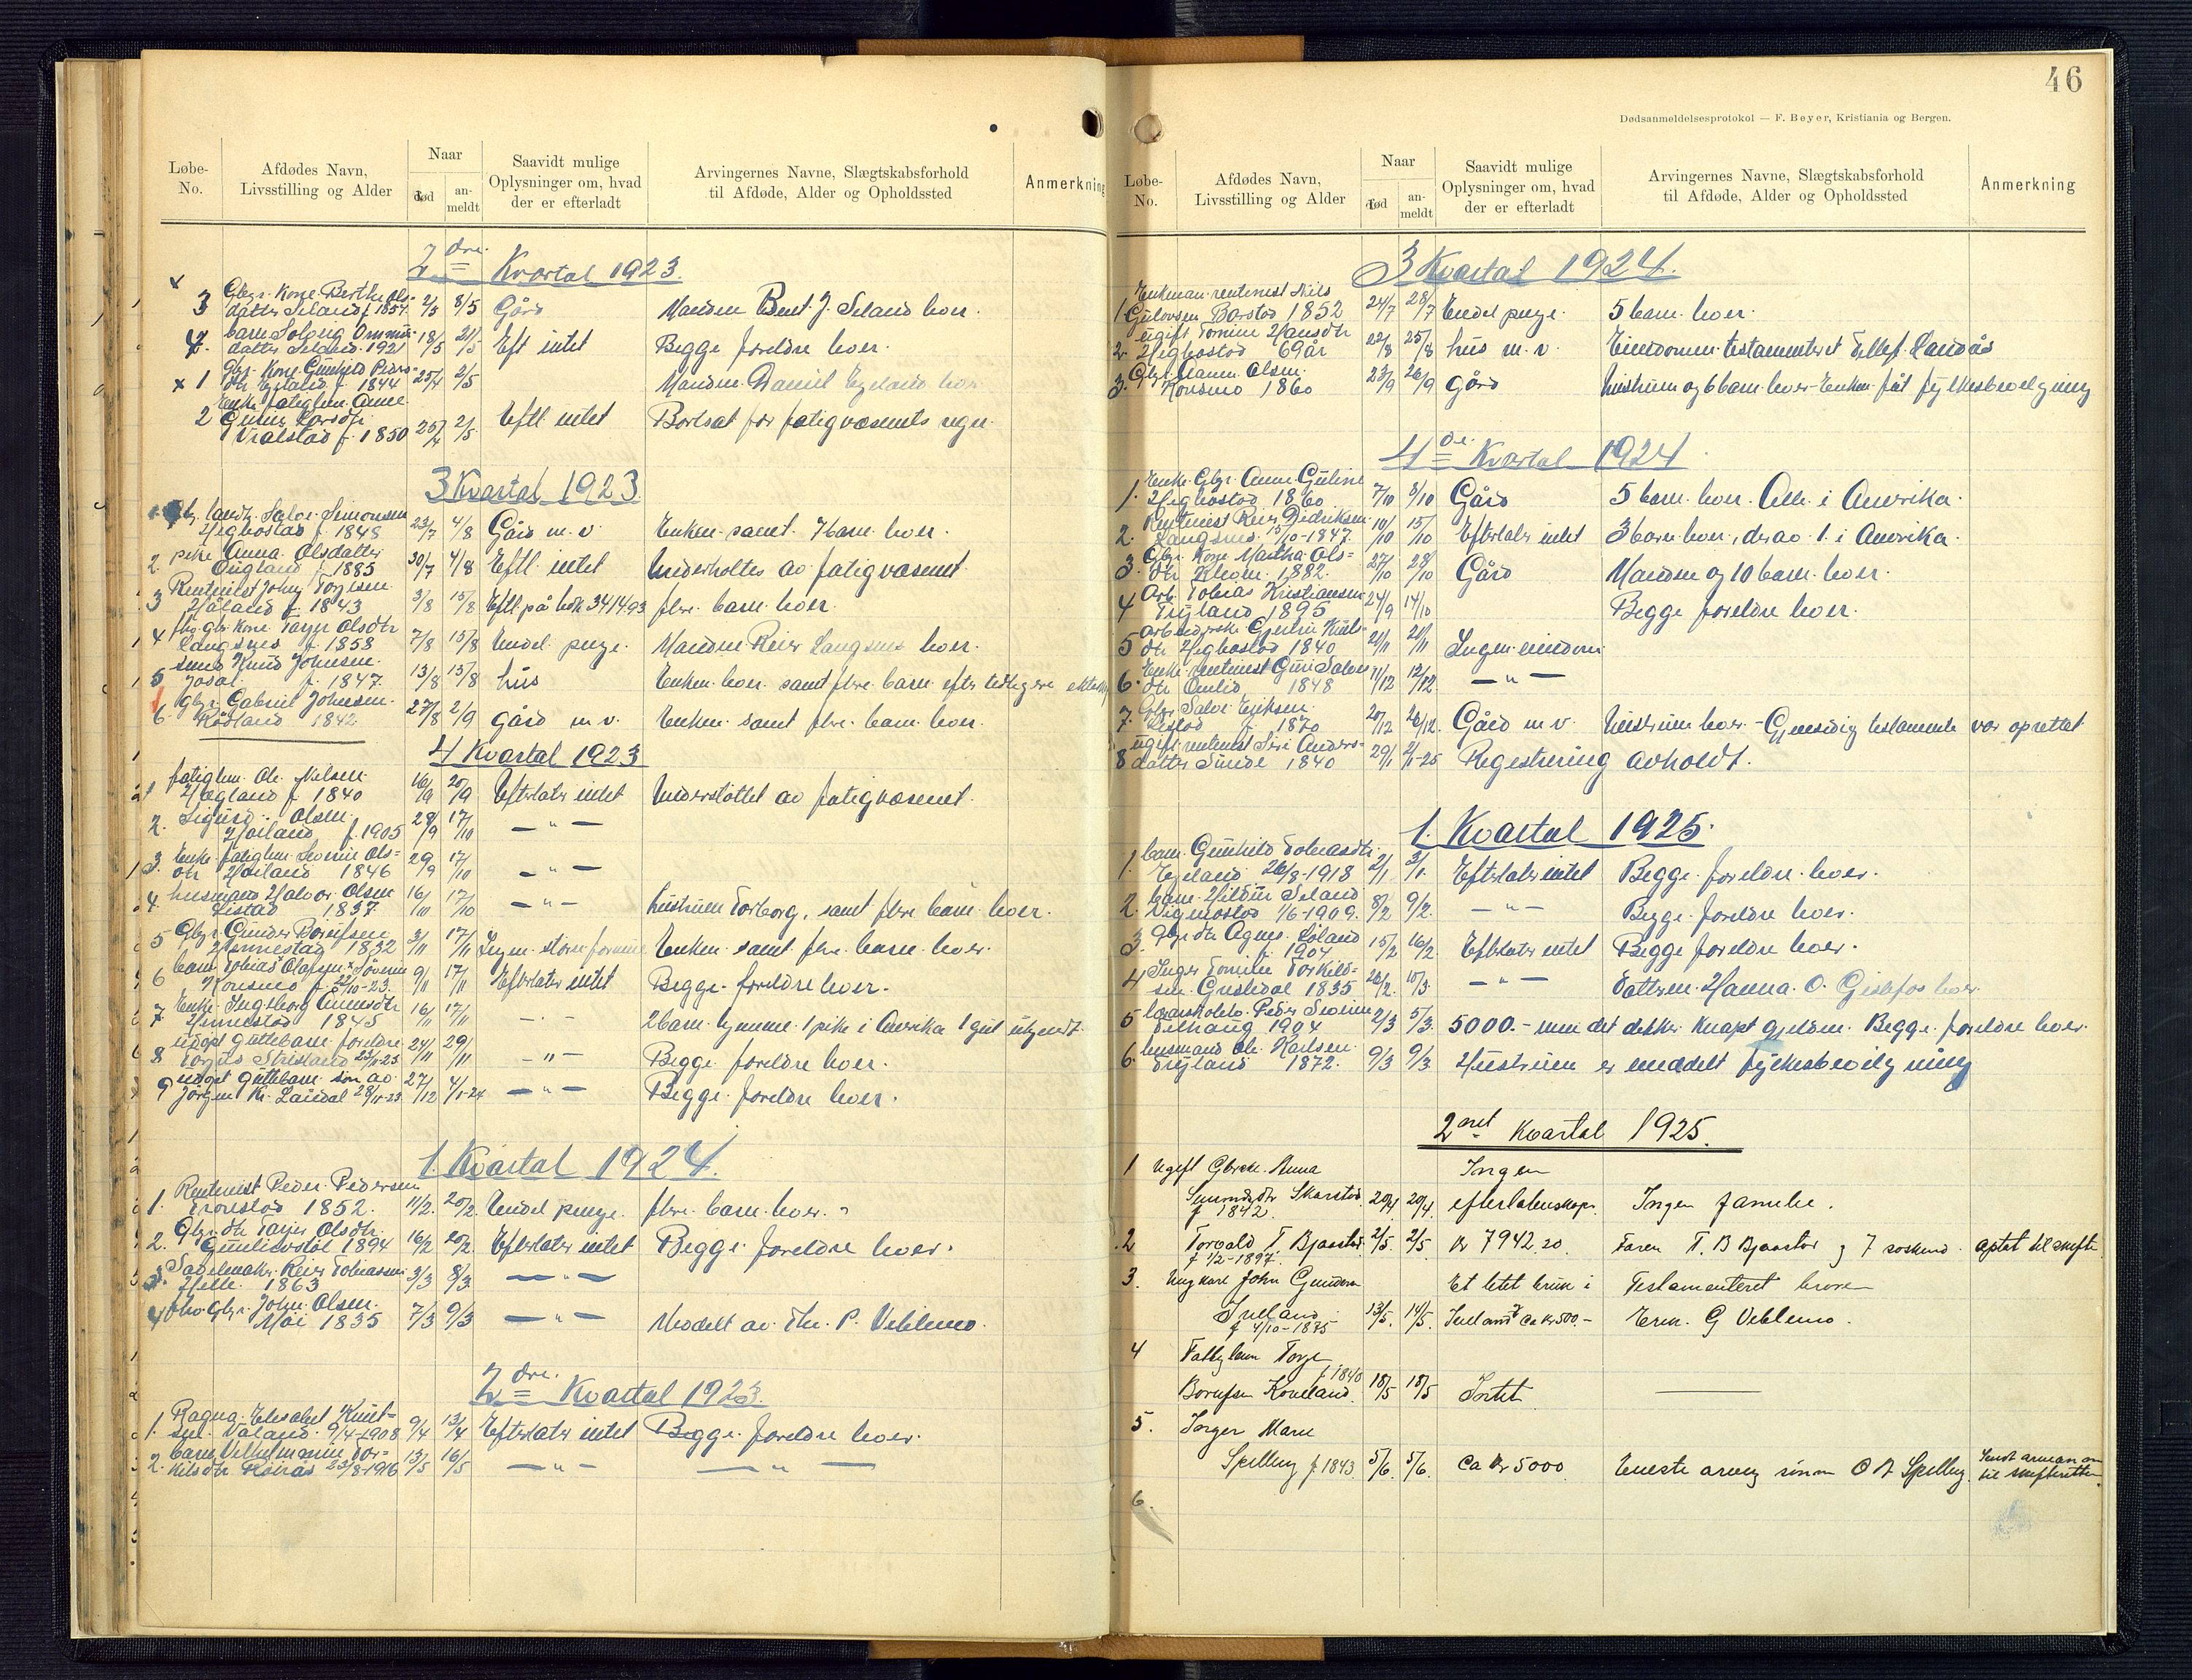 Løbe-No.
Afdødes Navn, Livsstilling og Alder
Naar
død
an-meldt
Saavidt mulige Oplysninger om, hvad der er efterladt
Arvingernes Navne, Slægtskabsforhold til Afdøde, Alder og Opholdssted
Anmerkning
2 dre Kvartal 1923.
x 3 Gbr. Kone Berthe Ols-
datter Seland f. 1854 2/5 8/5 Gård Manden Bent J. Seland lever.
4. barn Solveig
datter Seland 1921 18/5 21/5 Eft intet Begge foreldre lever.
x 1 Gbr. Kone Gunhild Peders-
dtr Egeland f. 1844 25/4 2/5 Manden Daniel Egeland lever
Enke fatiglem Anne
2 Gurine Larsdtr
Vralstad f. 1850 25/4 2/5 Eftl intet Bortsat for fatigvæsenets regn.
3 Kvartal 1923.
Salve Simonsen
Heghostad f. 1848 23/7 4/8 Gård m.v. Enken samt 7 barn lever.
2. pike Anna Olsdatter
Øugland f. 1885 30/7 4/8 Eftl. intet Underholtes av fatigvæsenet.
3 Rentenist John Torjesen
Håland f. 1843 3/8 15/8 Eftl. på bok 341493 flere barn lever.
4 fho. gbr. Kone Tarjer Olsdtr
Langsnes f. 1858 7/8 15/8 Endel penge. Manden Reier Langsnes lever.
5 smed Knud Johnsen
Josal f. 1847. 13/8 15/8 hus Enken lever samt flere barn efter tidligere ekteskap
6. Gbr. Gabriel Johnsen
Rødland 1842 27/8 2/9 gård m v. Enken samt flere barn lever.
4 Kvartal 1923
1 fatiglem Ole Nilsen
Hægland f. 1840 16/9 20/9 Efterlater intet Understøttet av fatigvæsenet.
2. Sigurd Olsen
Høiland f. 1905 28/9 17/10 — " —
3. Enke fatiglem Severine Ols=
dtr Høiland 1846 29/9 17/10 — " —
4. husmand Halvor Olsen
Listad 1837. 16/10 17/10 — " — hustruen Torborg, samt flere barn lever.
5 Gbr. Gunder Børufsen
Hennestad 1832 3/11 17/11 Ingen større formue Enken samt flere barn lever.
6 barn Tobias Olafsen
Konsmo f. 22/10-23. 9/11 17/11 Efterlater intet Begge foreldre lever.
7 Enke Ingeborg Gunnsdtr
Hennestad 1845 16/11 17/11 — " — 2 barn hjemme 1 pike i Amerika 1 gut ukjendt.
8 udøpt guttebarn foreldre
Torjus Stristand 23/11-23 24/11 29/11 — " — Begge foreldre lever.
9 udøpt guttebarn søn av
Jørgen Kr. Laudal 28/11-23 27/12 4/1-24 — " — Begge foreldre lever.
1. Kvartal 1924.
1. Rentenist Peder Pedersen
Trorestad 1852. 11/2. 20/2. Endel penge. flere barn lever.
2. Gbr. dtr Tarjer Olsdtr.
Gunlievstøl 1894 16/2 20/2. Efterlater intet Begge foreldre lever.
3. Sadelmaker Reier Tobiassen
Helle. 1863 3/3 8/3. — " —
4 fho. Gbr. John Olsen.
Moi 1835 7/3 9/3 — " — Meddelt av Thr. P. Veblemo.
2 dre. Kvartal 1923.
1. Ragna Elisabet Knut=
sen Våland. 9/4-1908 9/4 13/4 Efterlater intet Begge foreldre lever.
2. barn Vilhelmine Tor-
kilsdtr Røiras 23/8-1916 13/5 16/5 — " — — " —
46
Dødsanmeldelsesprotokol — F. Beyer, Kristiania og Bergen.
Løbe-No.
Afdødes Navn, Livsstilling og Alder
Naar
død
an-meldt
Saavidt mulige Oplysninger om, hvad der er efterladt
Arvingernes Navne, Slægtskabsforhold til Afdøde, Alder og Opholdssted
Anmerkning
3 Kvartal 1924.
Enkeman rentenist Nils
1 Gulovsen Borstad 1852 24/7 28/7 Endel penge. 5 barn lever.
ugift Tomine Hansdtr
2 Heghostad 69 år 22/8 25/8 hus m. v. Eiendomen testamenteret Tellef. Landås
3. Gbr. Olsen
Konsmo 1860 23/9 26/9 gård hustruen og 6 barn lever - Enken fåt fylkesbevilgning
4 de. Kvartal 1924
1. Enke Gbr. Anne Guline
Heghostad 1860 7/10 8/10 Gård 5 barn lever. Alle i Amerika.
2. Rentenist Reier Didriksen
Langsnes 15/10-1847. 10/10 15/10 Efterlater intet 3 barn lever, derav 1. i Amerika.
3. Gbr. Kone Martha Ols=
dtr 1882. 27/10 28/10 Gård Manden og 10 barn lever.
4 Arb. Tobias Kristiansen
Trygland 1895 24/9 14/10 Begge foreldre lever.
5 Arbeiderske Gjertrue Niels-
dtr Heghostad 1840 20/11 20/11 Ingen eiendom
6. Enke rentenist Guri Salves
dtr Omlid 1848 11/12 12/12 — " —
7. Gbr. Salve Eriksen
Listad f. 1870 20/12 26/12. Gård m v. Hustruen lever. - Gjensidig testamente var oprettet
8 ugift rentenist Siri Anders-
datter Sunde 1840 29/1 2/1-25 Regestrering avholdt.
1. Kvartal 1925.
1. barn Gunhild Tobiasdtr.
Egeland 26/8-1918 2/1 3/1. Efterlater intet Begge foreldre lever.
2. barn Hildur Seland
Vigmostad 1/6-1909. 8/2 9/2. — " — Begge foreldre lever.
3. Gbr dtr Agnes Løland
f. 1904 15/2 16/2. Efterlater intet Begge foreldre lever.
4 Inger Tomine Torkild=
sen Gusledal 1835 26/2. 10/3. — " — Datteren Hanna O. Gislefos lever.
5 Peder Severin
1904 2/3 5/3. 5000.- men det dekker knapt gjelden. Begge foreldre lever.
6. husmand Ole Karlsen
Trygland 1872. 9/3 9/3. Hustruen er meddelt fylkesbevilgning
2net Kvartal 1925.
1 Ugift Anna Ingen
Skarstad f 1842. 20/4 20/4. efterlatenskaper. Ingen familie.
2 Torvald T. Bjaastad 2/5. 2/5. Kr 7942.20. Faren T. B Bjaastad og 7 søskend. aptet til skifte
f 1/2-1897.
3. Ungkare John Gundersen Et litet bruk i Testamenteret brore
Iveland 13/5. 14/5. Iveland ca kr 500.- Erik. G Veblemo.
f 4/10-1835
4 Fattiglem Torje f. 1840
Børufsen Koveland. 18/5 18/5 Intet. ———
5. Inger Marie
Spilling f 1843. 5/6. 5/6. Ca Kr 5000. Eneste arving sønen O A Spilling. til skifteretten
6.